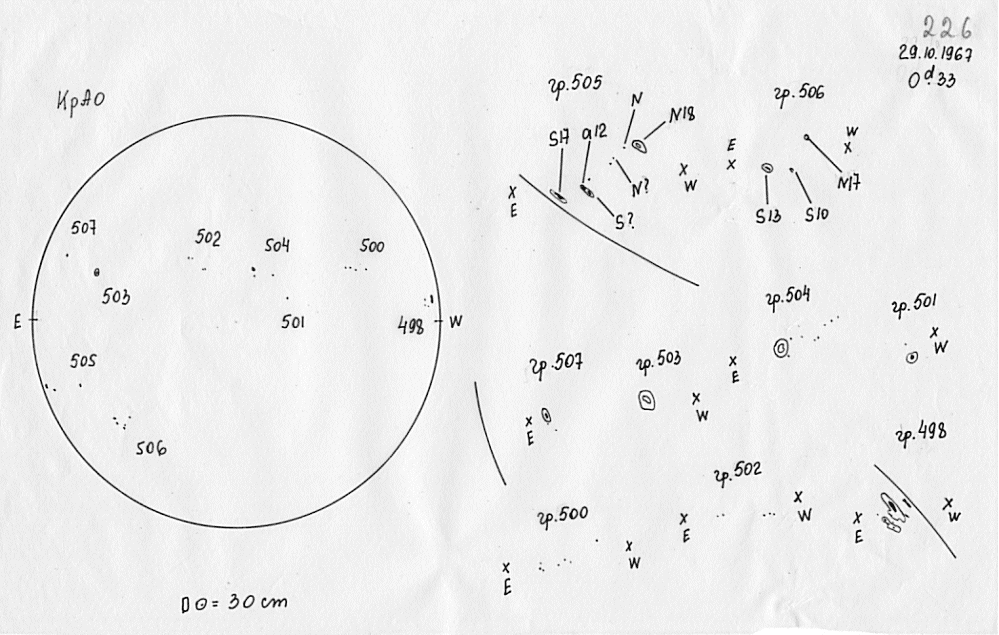 226
29.10.1967
0ᵈ.33
КрАО
гр.505
S17
a12
N
N18
N?
S?
X
E
X
W
гр.506
E
X
W
X
S13
S10
N17
507
503
502
504
500
501
498
505
506
E
W
гр.504
X
E
гр.501
X
W
гр.507
X
E
гр.503
X
W
гр.498
X
E
X
W
гр.502
X
E
X
W
гр.500
X
E
X
W
D⊙ = 30 cm